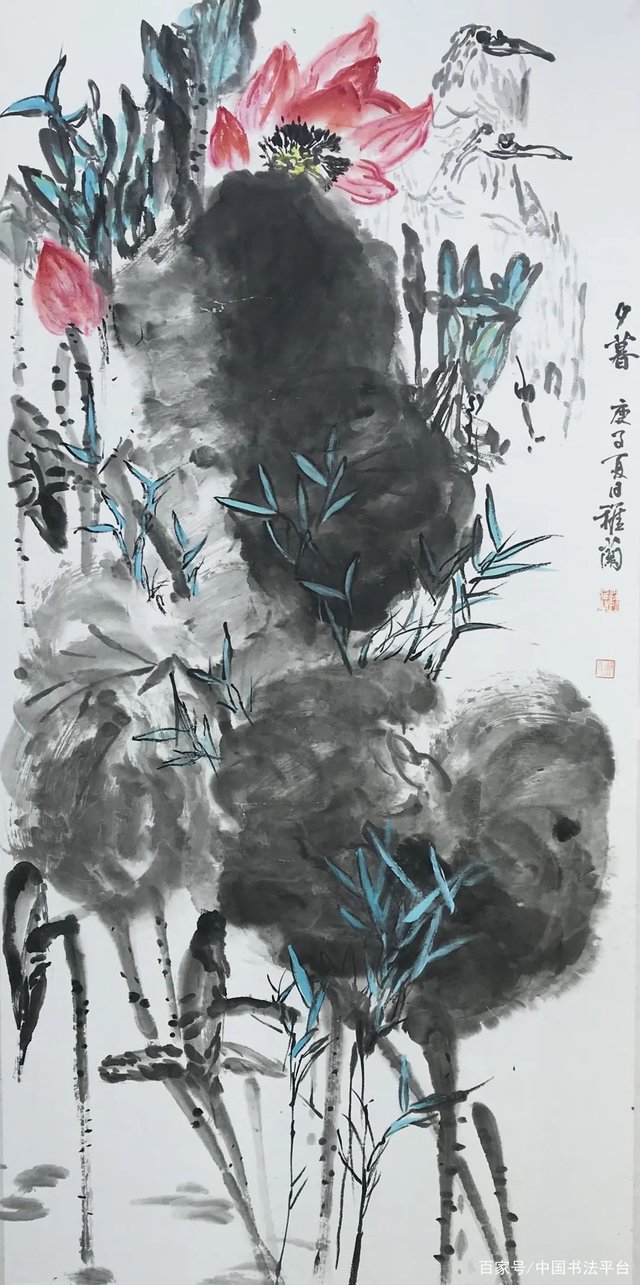 夕暮 庚子夏日雅蘭
百家号/中国书法平台